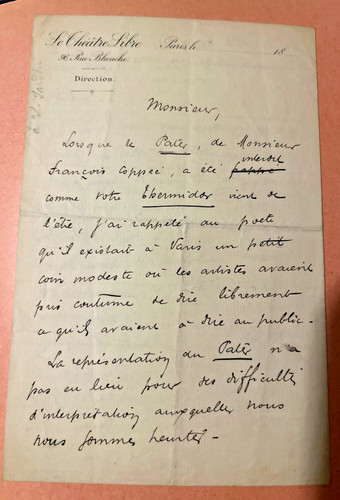 Le Théâtre Libre Paris le 18
96 Rue Blanche
Direction
Monsieur,
Lorsque le Pater, de Monsieur
François Coppée, a été frappé interdit
comme votre Thermidor vient de
l'être, j'ai rappelé au poète
qu'il existait à Paris un petit
coin modeste où les artistes avaient
pris coutume de dire librement
ce qu'ils avaient à dire au public.
La représentation du Pater n'a
pas eu lieu pour des difficultés
d'interprétation auxquelles nous
nous sommes heurtés.